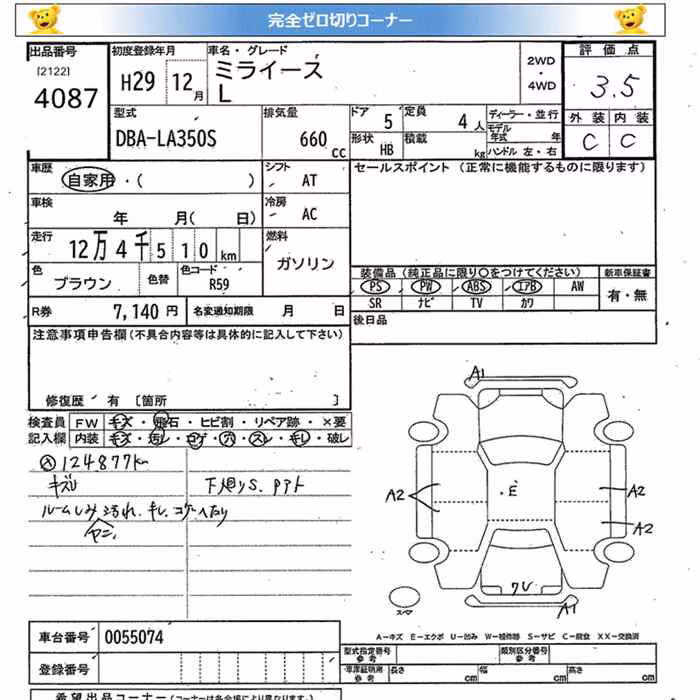 完全ゼロ切りコーナー
出品番号 [2122] 4087
初度登録年月 H29 12月
車名・グレード ミライース L
2WD・4WD
評価点 3.5
外装 内装
C C
型式 DBA-LA350S
排気量 660 cc
ドア 5 定員 4人
形状 HB 積載 kg
ディーラー・並行
モデル年式 年
ハンドル 左・右
車歴 自家用・( )
シフト AT
セールスポイント (正常に機能するものに限ります)
車検 年 月( 日)
冷房 AC
走行 12万4千510 km
燃料 ガソリン
色 ブラウン 色替 色コード R59
装備品 (純正品に限り○をつけてください) 新車保証書
PS PW ABS エアB AW 有・無
SR ナビ TV カワ
R券 7,140円 名変通知期限 月 日
後日品
注意事項申告欄(不具合内容等は具体的に記入して下さい)
修復歴 有 [箇所 ]
検査員 FW キズ・飛石・ヒビ割・リペア跡・×要
記入欄 内装 キズ・汚レ・コゲ・穴・スレ・キレ・破レ
124877km
下廻りS.
ルームしみ汚れ.
ヤニ
A1
A2 E A2
A2
A1
A-キズ E-エクボ U-凹み W-補修跡 S-サビ C-腐食 XX-交換済
車台番号 0055074
型式指定番号 参考 類別区分番号 参考
登録番号
車庫証明用 参考 長さ cm 幅 cm 高さ cm
希望出品コーナー(コーナーは各会場により異なります。)